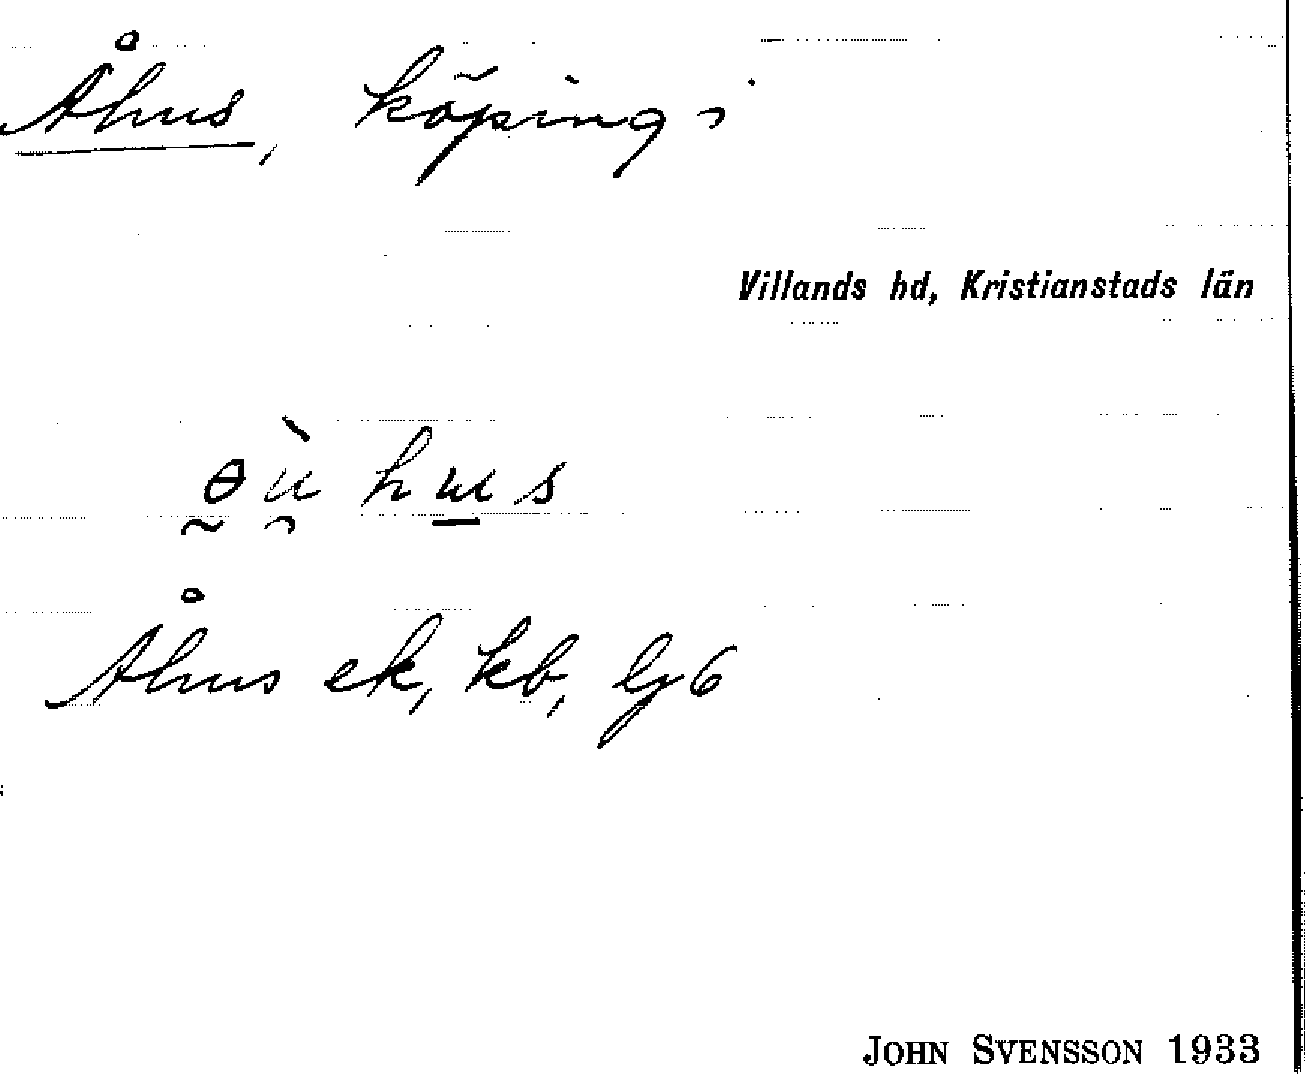 Åhus, köping i
Villands hd, Kristianstads län
Åhus ek, kb, bl 6
JOHN SVENSSON 1933